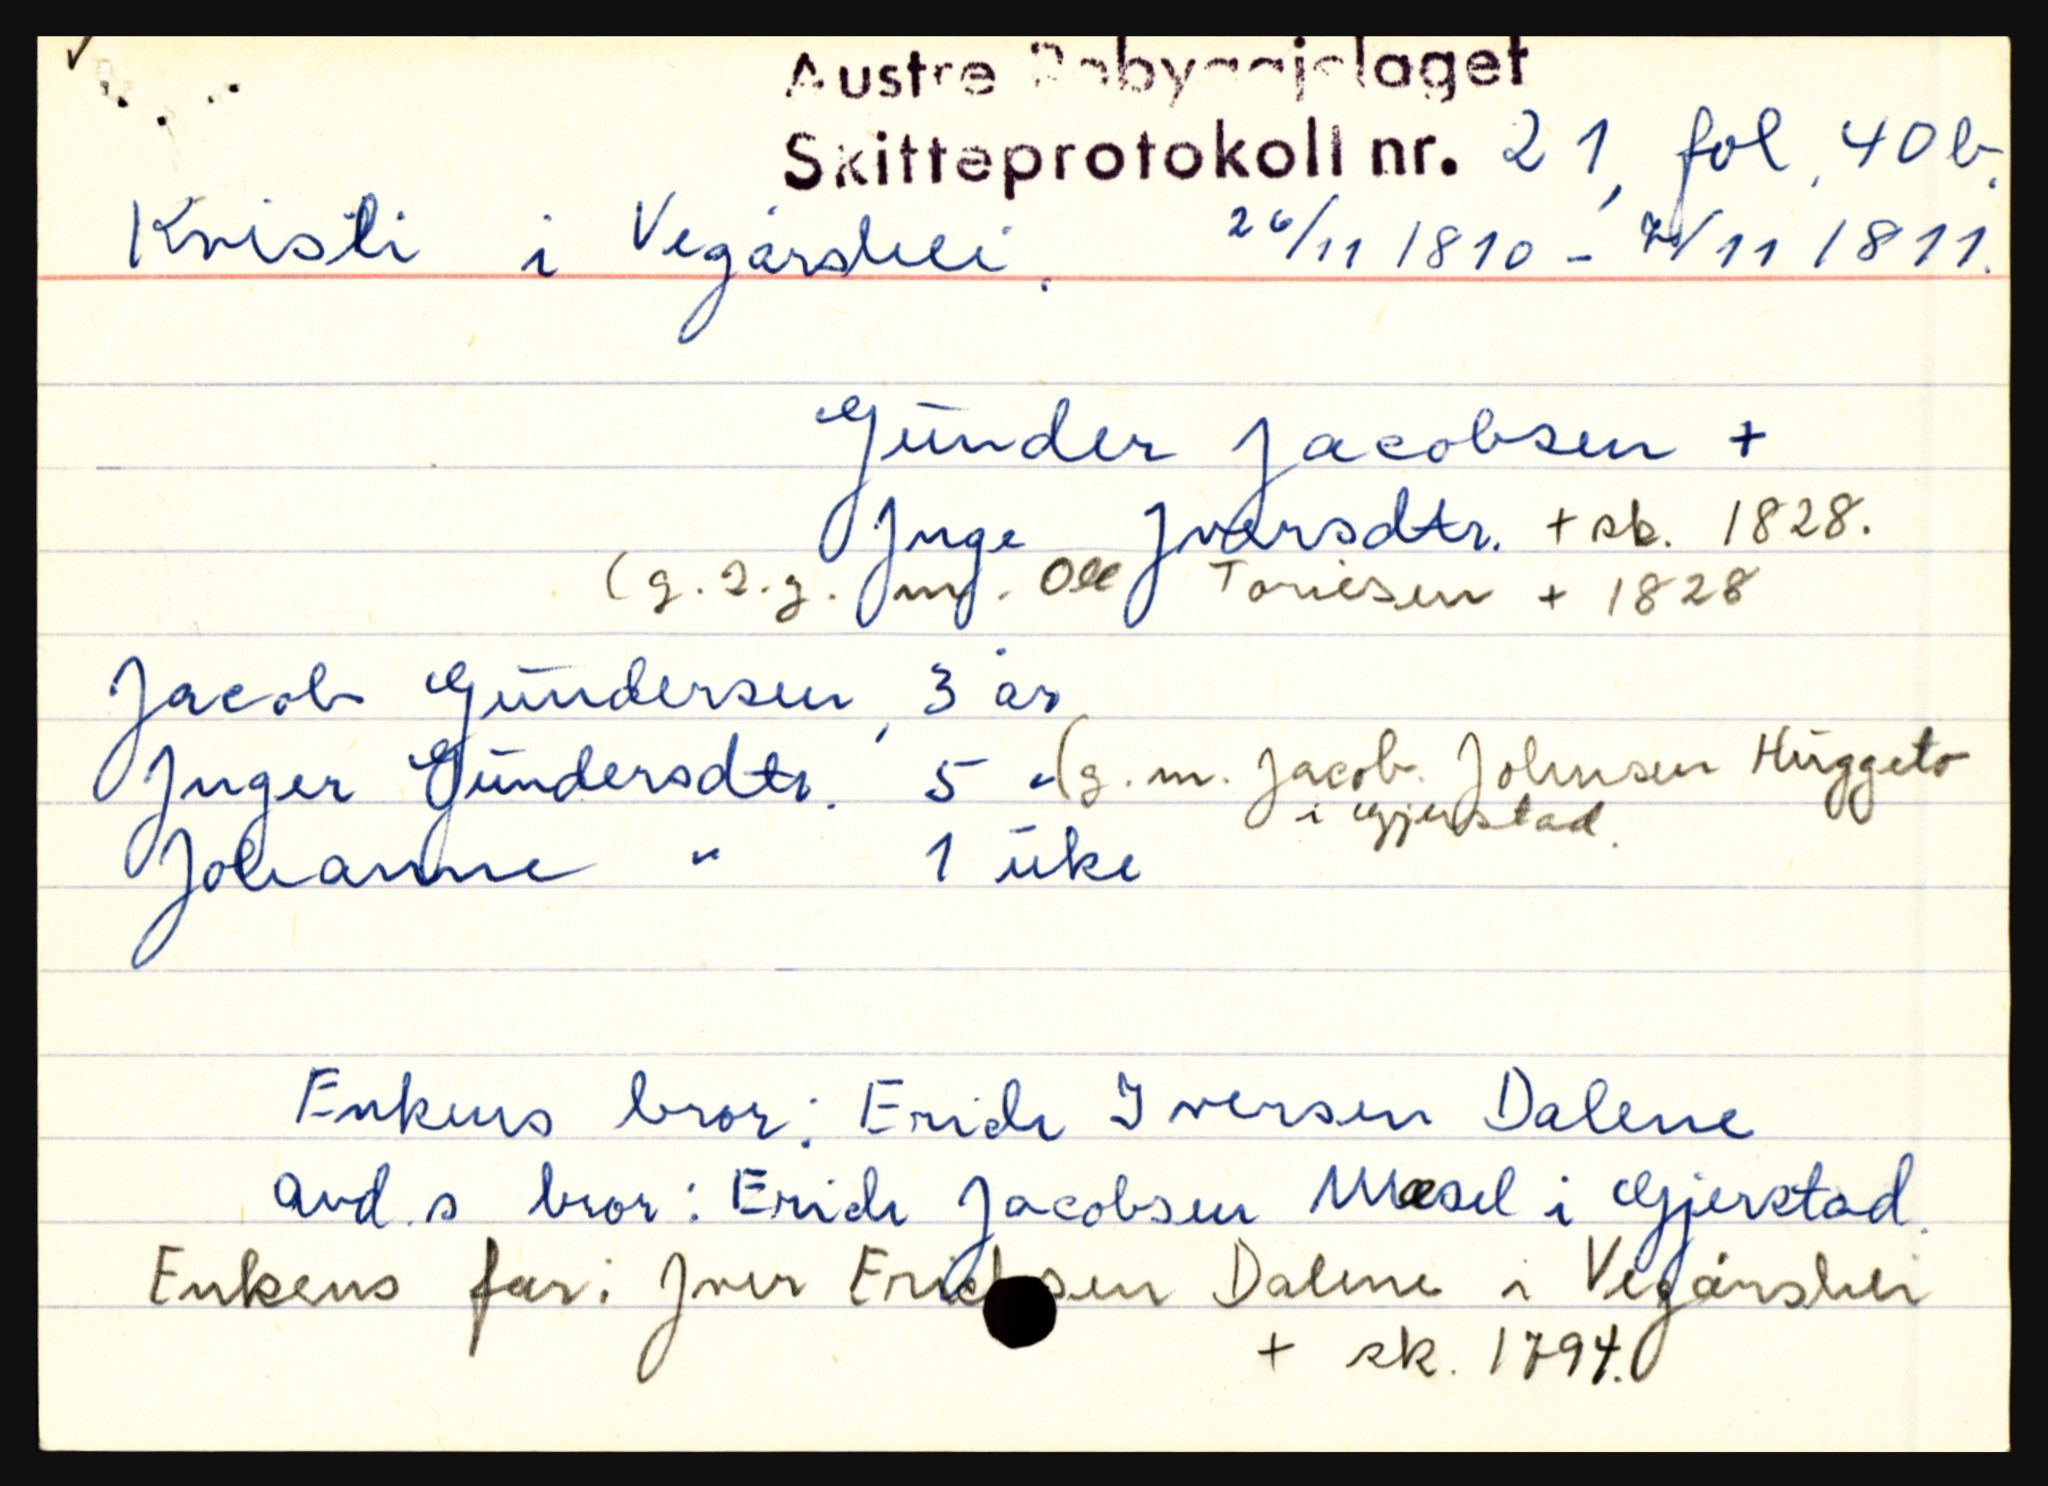 Austre Råbyggjelaget
Skifteprotokoll nr. 21, fol. 40b.
Kristi i Vegårshei. 26/11 1810 - /11 1811.
Gunder Jacobsen +
Inge Iversdtr. + sk. 1828.
(g. 2. g. m. Ole Toriesen + 1828
Jacob Gundersen, 3 år
Inger Gundersdtr. 5 " (g. m. Jacob Johnsen Huggeto
i Gjerstad.
Johanne " 1 uke
Enkens bror: Erich Iversen Dalene
avd.s bror: Erich Jacobsen Mæsel i Gjerstad.
Enkens far: Iver Erichsen Dalene i Vegårshei
+ sk. 1794.